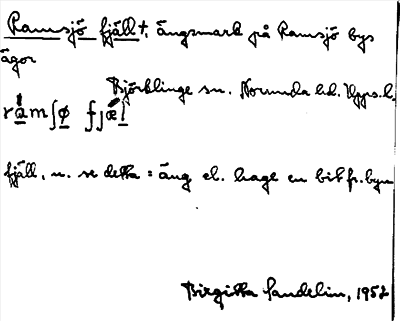 Ramsjö fjäll †, ängsmark på Ramsjö bys
ägor
Björklinge sn. Norunda hd. Upps. l.
rámʃø fjæ̀l
fjäll, n. se detta = äng el. hage en bit fr. byn
Birgitta Sandelin, 1952